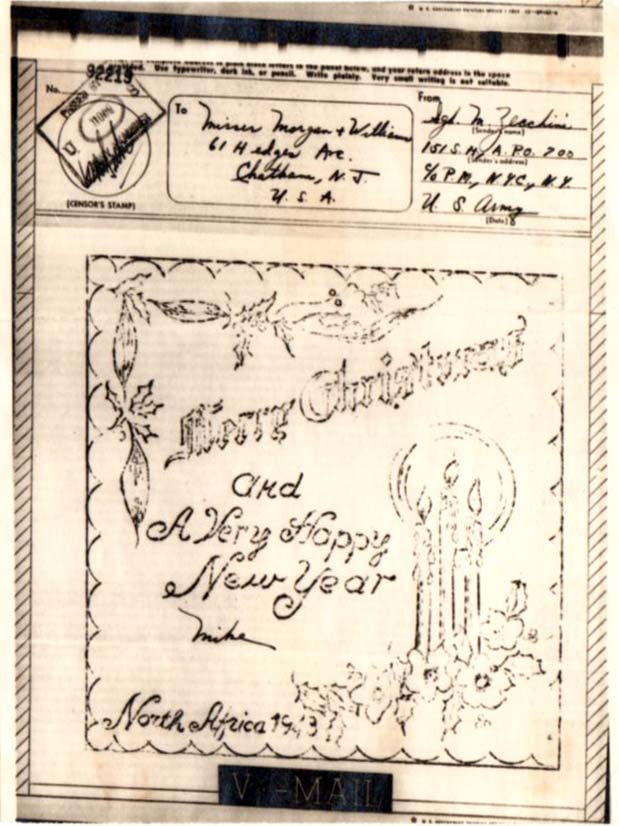 No.
92219
(CENSOR'S STAMP)
To
Misses Morgan + William
61 Hedges Ave.
Chatham, N. J.
U. S. A.
Use typewriter, dark ink, or pencil. Write plainly. Very small writing is not suitable.
From
Sgt. M. Zecchini
(Sender's name)
151 S. H., A. P.O. 700
(Sender's address)
c/o P.M., N.Y.C., N.Y.
U. S. Army
(Date)
Merry Christmas
and
A Very Happy
New Year
Mike
North Africa 1943
V-MAIL